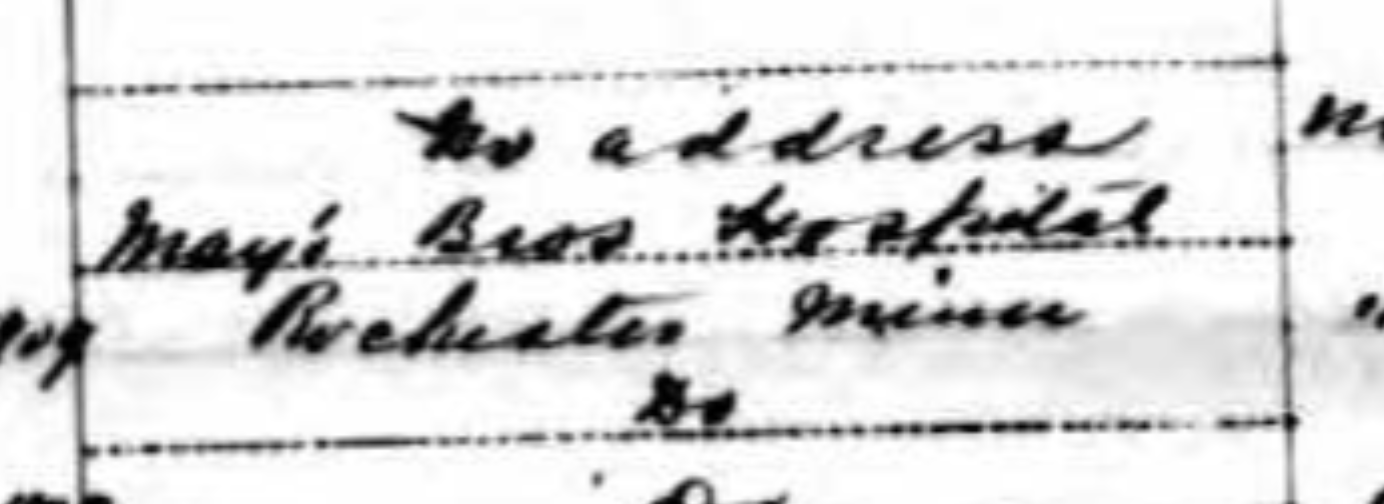 No address
May's Bros Hospital
Rochester Minn
Do